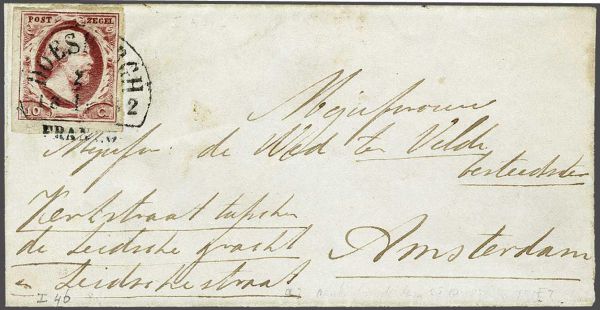 POST ZEGEL
DOESBURGH
2
10 C
FRANCO
Mejufvrouw
Mejufvr. de Wed ten Velde
besteedster
Kerkstraat tusschen
de Leidsche gracht
en Leidschestraat
Amsterdam
I 46